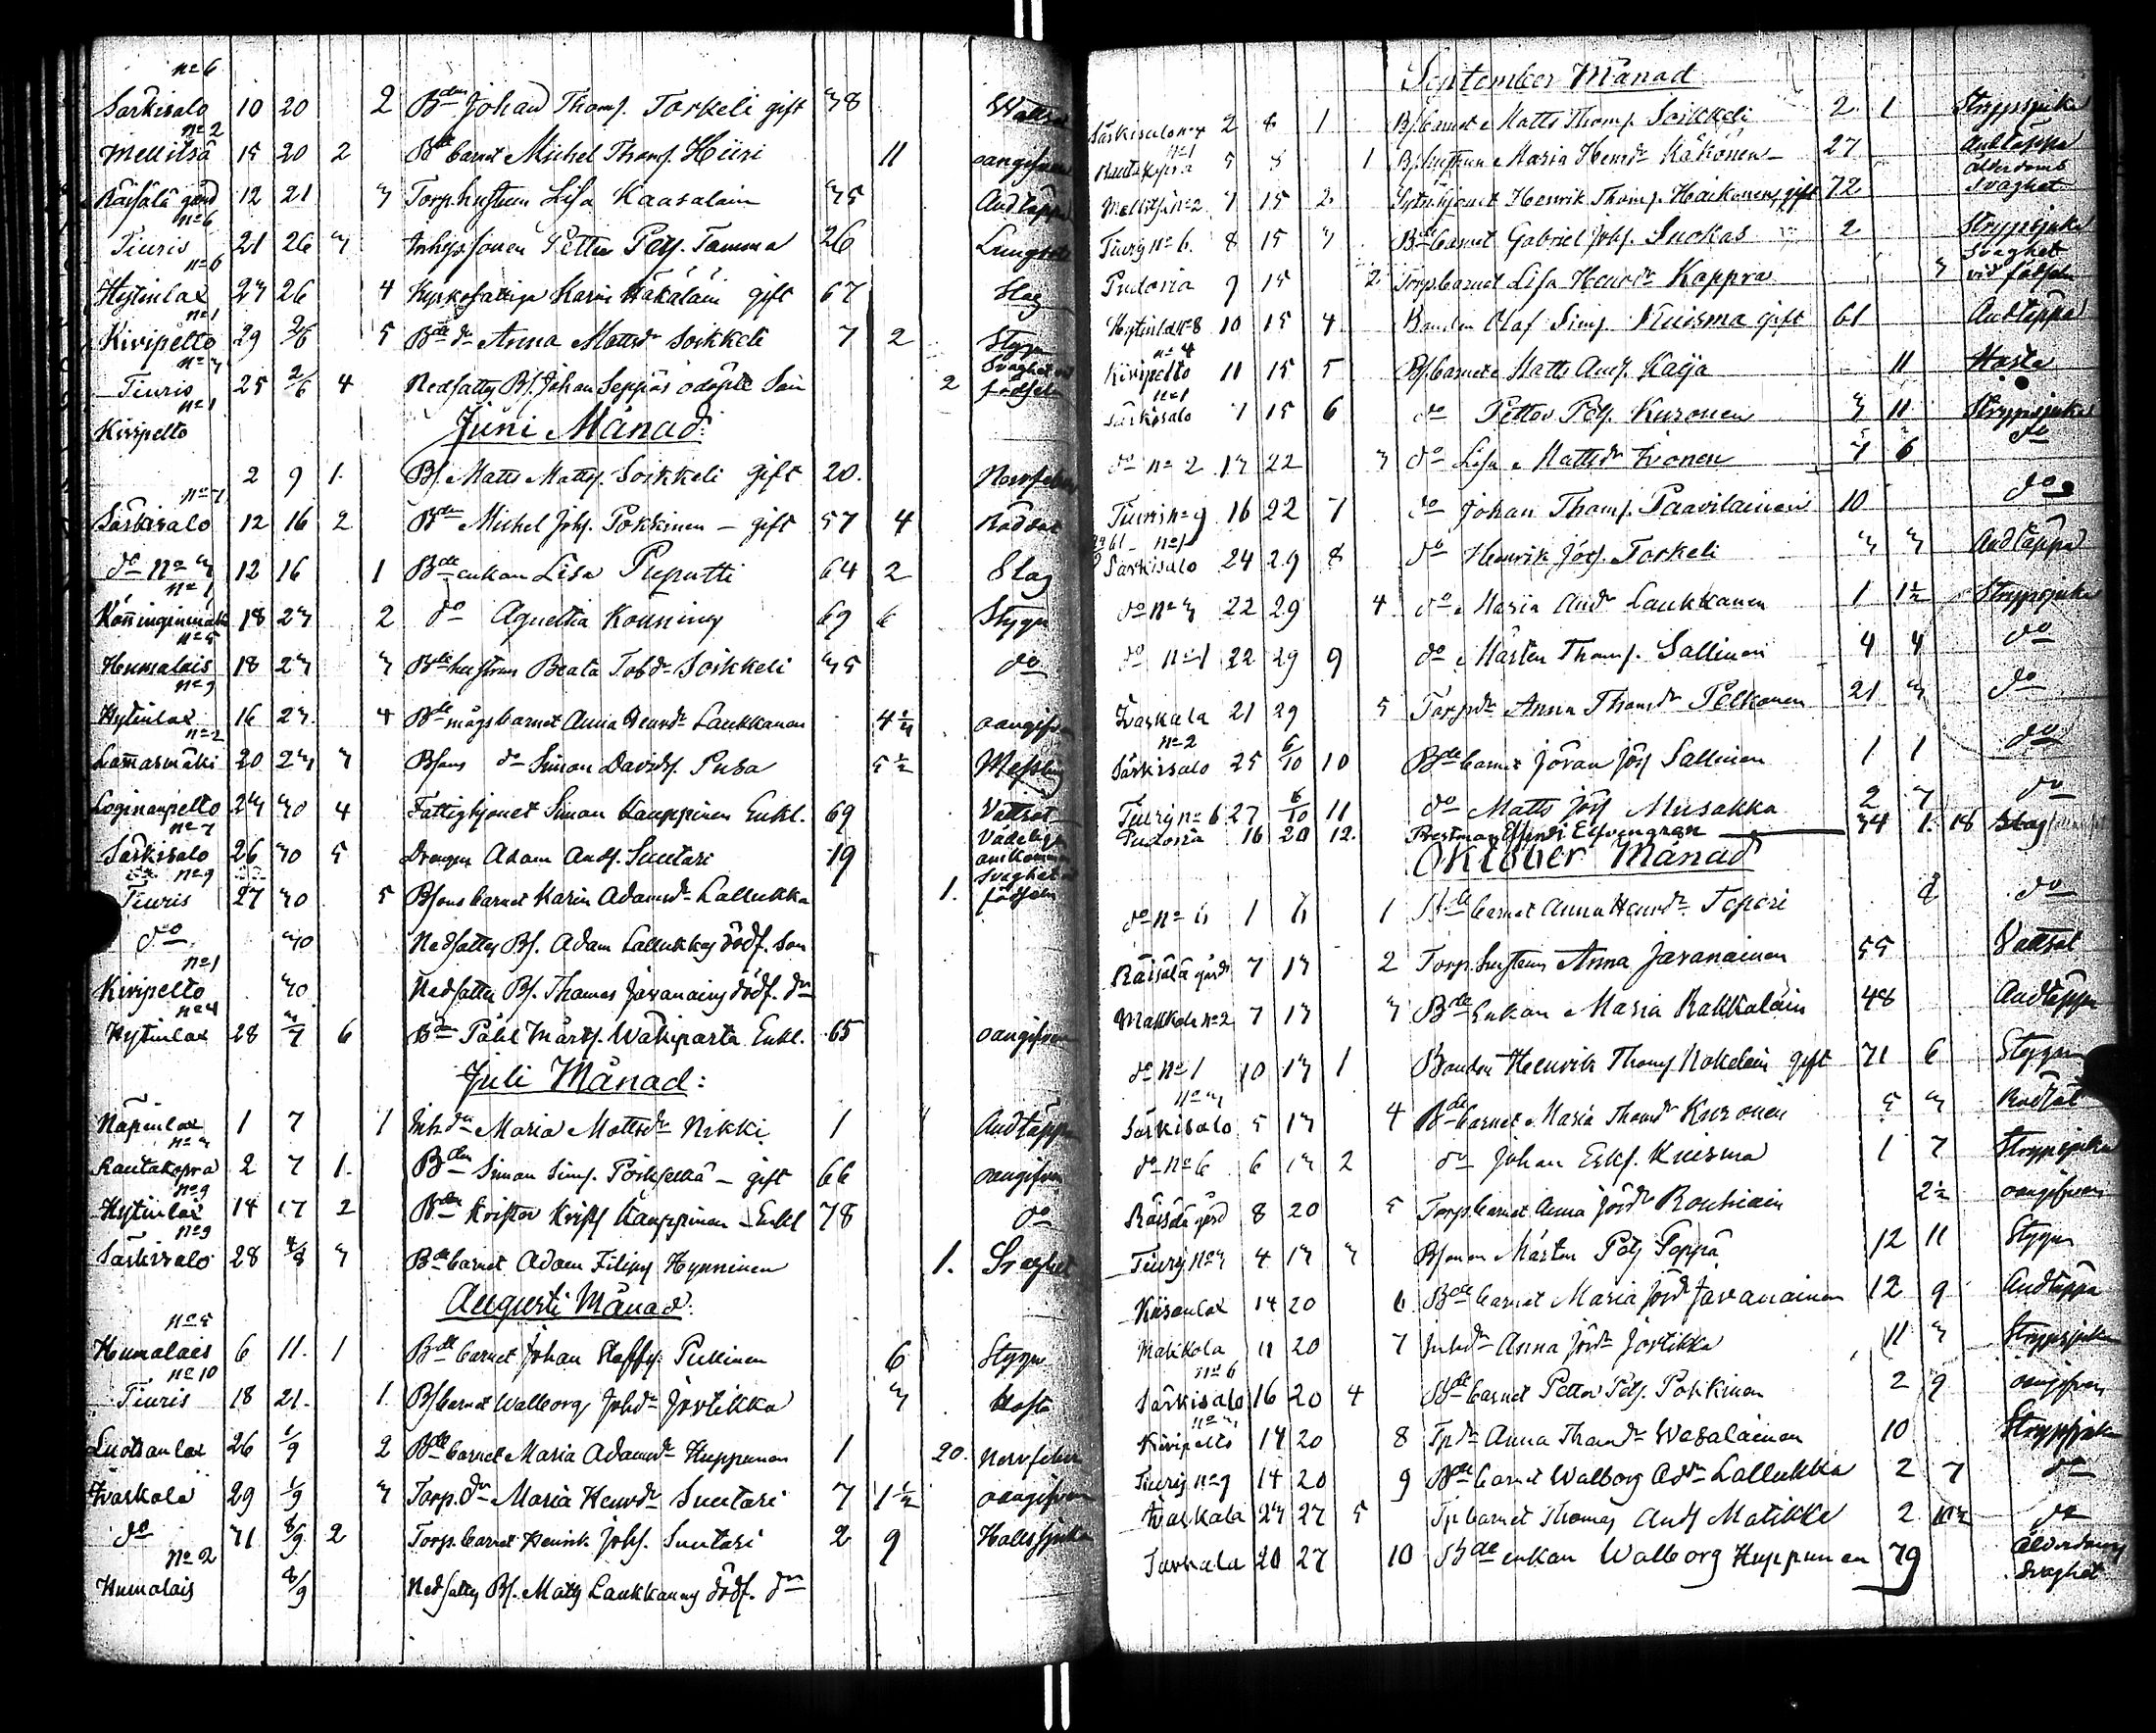 n:o 6
Särkisalo 10 20 2 B:den Johan Thoms. Torkeli gift 38 Wattsot
n:o 2
Mellitsä 15 20 2 B:de barnet Michel Thoms. Hiiri 11 oangifven
Räisälä gård 12 21 3 Torp.hustrun Lisa Kaasalain 35 Andtäppa
n:o 6
Tiuris 21 26 3 Petter Pets. Tamma 26
n:o 6
Hytinlax 23 26 4 Kyrkofattiga Karin Häkäläin gift 67 Slag
n:o 1
Kivipelto 29 2/6 5 B:de d:r Anna Mattsd:r Soikkeli 7 2 Stygn
n:o 3 Svaghet vid
Tiuris 25 2/6 4 Nedsatty Bs. Johan Seppäs odöpte Son 2 födseln
n:o 1
Kivipelto Juni Månad:
2 9 1. Bs. Matts Matts. Soikkeli gift 20. Nervfeber
n:o 7
Särkisalo 12 16 2 B:den Michel Johs. Pokkinen – gift 57 4 Rödsot
d:o N:o 3 12 16 1 B:de enkan Lisa Puputti 64 2 Slag
n:o 1
18 23 2 d:o Agnetta Konning 69 6 Stygn
n:o 5
Humalais 18 23 3 B:de hustrun Beata Tobd:r Soikkeli 35 d:o
n:o 9
Hytinlax 16 23 4 B:de mågs barnet Anna Henrd:r Laukkanen oangifven
n:o 2
Lammasmäki 20 23 3 Bsons d:o Simon Davids. Pusa 5 1/2 Messling
Loginanpelto 23 30 4 Fattighjonet Simon Kauppinen Enkl. 69 Vattsot
n:o 7 Vådeligen
Särkisalo 26 30 5 Drengen Adam Ands. Suutari 19 omkommen
n:o 9 Svaghet
Tiuris 27 30 5 Bsons barnet Karin Adamsd:r Lallukka 1. födseln
d:o 30 Nedsatty Bs. Adam Lallukkas dödf. Son
n:o 1
Kivipelto 30 Nedsatty Bs. Thomas Javanains dödf. d:r
n:o 4
Hytinlax 28 3/7 6 B:den Påhl Mårts. Wakiparta Enkl. 65 oangifven
Juli Månad:
Näpinlax 1 7 1 Inh.d:r Maria Mattsd:r Nikki 1 Andtäppa
n:o 3
Rautakopra 2 7 1. B:den Simon Sims. – gift 66 oangifven
n:o 9
Hytinlax 14 17 2 B:den Krister Krists. Kauppinen – Enkl 78 d:o
n:o 9
Särkisalo 28 4/8 3 B:de barnet Adam Filips. Hynninen 1. Svaghet
Augusti Månad:
n:o 5
Humalais 6 11. 1 B:de barnet Johan Staffs. Pukinen 6 Stygn
n:o 10
Tiuris 18 21. 1. Bs barnet Walborg Johd:r Jortikka 3 Hosta
Luotsanlax 26 1/9 2 B:de barnet Maria Adamsd:r Huppunen 1 20. Nervfeber
Ivaskala 29 1/9 3 Torp.d:r Maria Henrd:r Suutari 7 1 1/2 oangifven
d:o 31 8/9 2 Torp.barnet Henrik Johs. Suutari 2 9 Halssjuka
N:o 2
Humalais 8/9 Nedsatty Bs. Matts Laukkanens dödf. d:r
September Månad
Särkisalo n:o 4 2 8 1 Bs. barnet Matts Thoms. Soikkeli 2 1 Strypsjuka
n:o 1
Rautakopra 5 8 1 Bs. hustrun Maria Henrd:r Käkönen 27 Andtäppa
Ålderdoms
Mellitsä n:o 2 7 15 2 Henrik Thoms. Haikonen gift 72 Svaghet
Tiuris n:o 6. 8 15 3 B:de barnet Gabriel Johs. Suokas 2 Strypsjuka
Svaghet
Pudoria 9 15 2 Torp.barnet Lisa Henrd:r Koppra 3 vid födseln
Hytinlax n:o 8 10 15 4 Bonden Olof Sims. Kuisma gift 61 Andtäppa
n:o 4
Kivipelto 11 15 5 Bs. barnet Matts Ands. Kaija 11 Hosta
n:o 1
Särkisalo 7 15 6 d:o Petter Pets. Kuronen 3 11 Strypsjuka
d:o n:o 2 13 22 3 d:o Lisa Mattsd:r 6 d:o
Tiuris n:o 9 16 22 7 d:o Johan Thoms. Paavilainen 10 d:o
n:o 1
Särkisalo 24 29 8 d:o Henrik Jörs. Torkeli 3 3 Andtäppa
d:o n:o 3 22 29 4 d:o Maria And:r Laukkanen 1 1 1/2 Strypsjuka
d:o n:o 1 22 29 9 d:o Mårten Thoms. Sallinen 4 4 d:o
Ivaskala 21 29 5 Torpd:r Anna Thomsd:r Pelkonen 21 3 d:o
n:o 2
Särkisalo 25 6/10 10 B:de barnet Jöran Jörs Sallinen 1 1 d:o
Tiuris n:o 6 27 6/10 11 d:o Matts Jörs Musakka 2 7 d:o
Pudoria 16 20 12. 34 1. 18 Slag
Oktober Månad
d:o n:o 6 1 6 1 B:de barnet Anna Henrd:r Topari 2 d:o
Räisälä gård 7 13 2 Torp.hustrun Anna Javanainen 55 Vattsot
Makkola n:o 2 7 13 3 B:de Enkan Maria Rakkolain 48 Andtäppa
d:o N:o 1 10 13 1 Bonden Henrik Thoms gift 71 6 Stygn
n:o 3
Särkisalo 5 13 4 B:de barnet Maria Thomsd:r Kuronen 5 3 Rödsot
d:o n:o 6 6 13 2 d:o Johan Esks. Kuisma 1 7 Strypsjuka
Räisälä gård 8 20 5 Torp barnet Anna Jörd:r Rouhiain 2 1/2 oangifven
Tiuris N:o 3 4 13 3 Bsonen Mårten Pets Peppä 12 11 Stygn
Kiisanlax 14 20 6 B:de barnet Maria Jörd:r Javanainen 12 9 Andtäppa
Makkola 11 20 7 Inh.d:r Anna Jörd:r Jortikka 11 3 Strypsjuka
n:o 6
Särkisalo 16 20 4 B:de barnet Petter Pets. Pokkinen 2 9 oangifven
n:o 3
Kivipelto 14 20 8 Tpd:r Anna Thomd:r Wesalainen 10 Strypsjuka
Tiuris n:o 9 14 20 9 B:de barnet Walborg Add:r Lallukka 2 7 d:o
Ivaskala 23 27 5 Tp barnet Thomas Ands Matikka 2 d:o
Ålderdoms
Tavkala 20 27 10 B:de enkan Walborg Huppunen 79 Svaghet